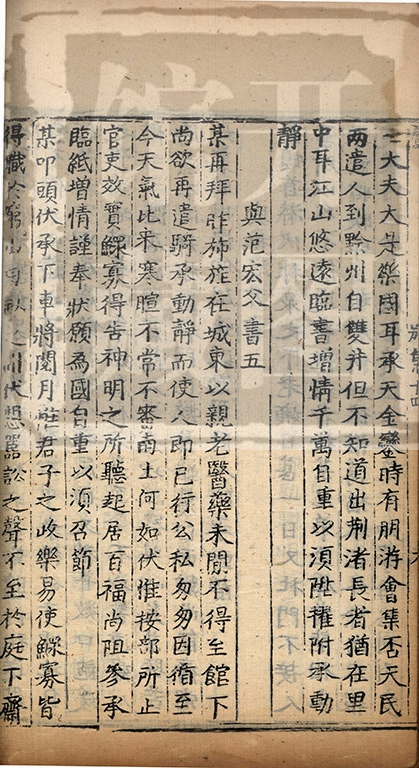 一大夫大是樂國耳承天金鑾時有朋游會集否天民
兩遣人到黔州自雙井但不知道出荆渚長者猶在里
中耳江山悠遠臨書增情千萬自重以須陞擢附承動
靜
與范宏父書五
某再拜昨旆旌在城東以親老醫藥未間不得至館下
尚欲再遣騎承動靜而使人即已行公私匆匆因循至
今天氣比來寒暄不常不審南土何如伏惟按部所止
官吏效實鰥寡得告神明之所聽起居百福尚阻參承
臨紙增情謹奉狀願為國自重以須召節
某叩頭伏承下車將閱月惟君子之政樂易使鰥寡皆
得職於窮山伏想嚚訟之聲不至於庭下齋